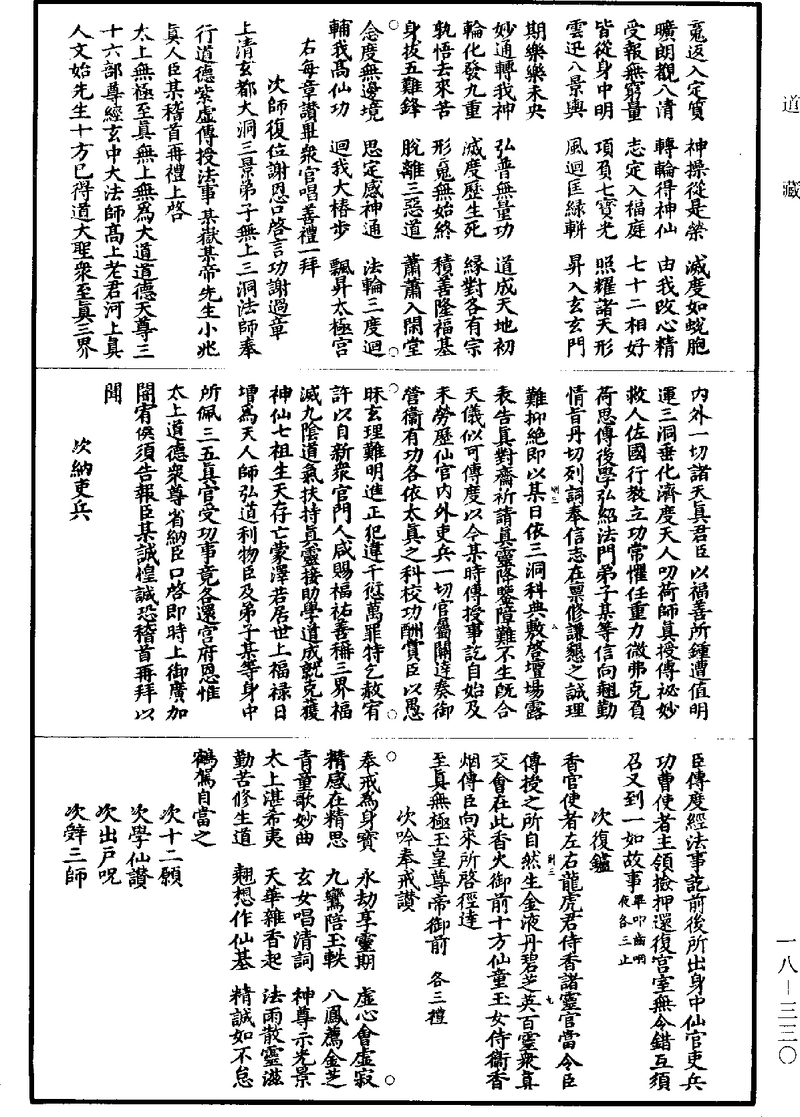 道藏
魂返入定質　神操從是榮　滅度如蛻胞
曠朗觀八清　轉輪得神仙　由我改心精
受報無窮量　志定入福庭　七十二相好
皆從身中明　項負七寶光　照耀諸天形
雲迅八景輿　風迴匡綠軿　昇入玄玄門
期樂樂未央
妙通轉我神　弘普無量功　道成天地初
輪化發九重　滅度歷生死　緣對各有宗
軌悟去來苦　形魂無始終　積善隆福基
身拔五難鋒　脫離三惡道　蕭蕭入閑堂
念度無邊境　思定感神通　法輪三度迴
輔我高仙功　迴我大椿步　飄昇太極宮
右每章讚畢衆官唱善禮一拜
次師復位謝恩口啓言功謝過章
上清玄都大洞三景弟子無上三洞法師奉
行道德紫虛傳授法事某嶽某帝先生小兆
真人臣某稽首再禮上啓
太上無極至真無上無爲大道道德天尊三
十六部尊經玄中大法師高上老君河上真
人文始先生十方已得道大聖衆至真三界
內外一切諸天真君臣以福善所鍾遭值明
運三洞垂化濟度天人叨荷師真授傳祕妙
救人佐國行教立功常懼任重力微弗克負
荷思傳後學弘紹法門弟子某等信向翹勤
情旨丹切列詞奉信志在稟修謙懇之誠理
難抑絕即以某日依三洞科典敷啓壇場露
表告真對齋祈請真靈降鑒障難不生旣合
天儀似可傳度以今某時傳授事訖自始及
末勞歷仙官內外吏兵一切官屬關達奏御
營衞有功各依太真之科校功酬賞臣以愚
昧玄理難明進止犯違千愆萬罪特乞赦宥
許以自新衆官門人咸賜福祐善稱三界福
滅九陰道氣扶持真靈接助學道成就克獲
神仙七祖生天存亡蒙澤若居世上福祿日
增爲天人師弘道利物臣及弟子某等身中
所佩三五真官受功事竟各還宮府恩惟
太上道德衆尊省納臣口啓即時上御廣加
開宥俟須告報臣某誠惶誠恐稽首再拜以
聞
次納吏兵
臣傳度經法事訖前後所出身中仙官吏兵
功曹使者主領撿押還復宮室無令錯互須
召又到一如故事畢叩齒咽液各三止
次復鑪
香官使者左右龍虎君侍香諸靈官當令臣
傳授之所自然生金液丹碧芝英百靈衆真
交會在此香火御前十方仙童玉女侍衞香
烟傳臣向來所啓徑達
至真無極玉皇尊帝御前　各三禮
次吟奉戒讚
奉戒爲身寶　永劫享靈期　虛心會虛寂
精感在精思　九鸞陪玉軼　八鳳薦金芝
青童歌妙曲　玄女唱清詞　神尊示光景
太上湛希夷　天華雜香起　法雨散靈滋
勤苦修生道　翹想作仙基　精誠如不怠
鶴駕自當之
次十二願
次學仙讚
次出戶呪
次辝三師
一八－三三〇